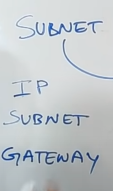 SUBNET
IP
SUBNET
GATEWAY